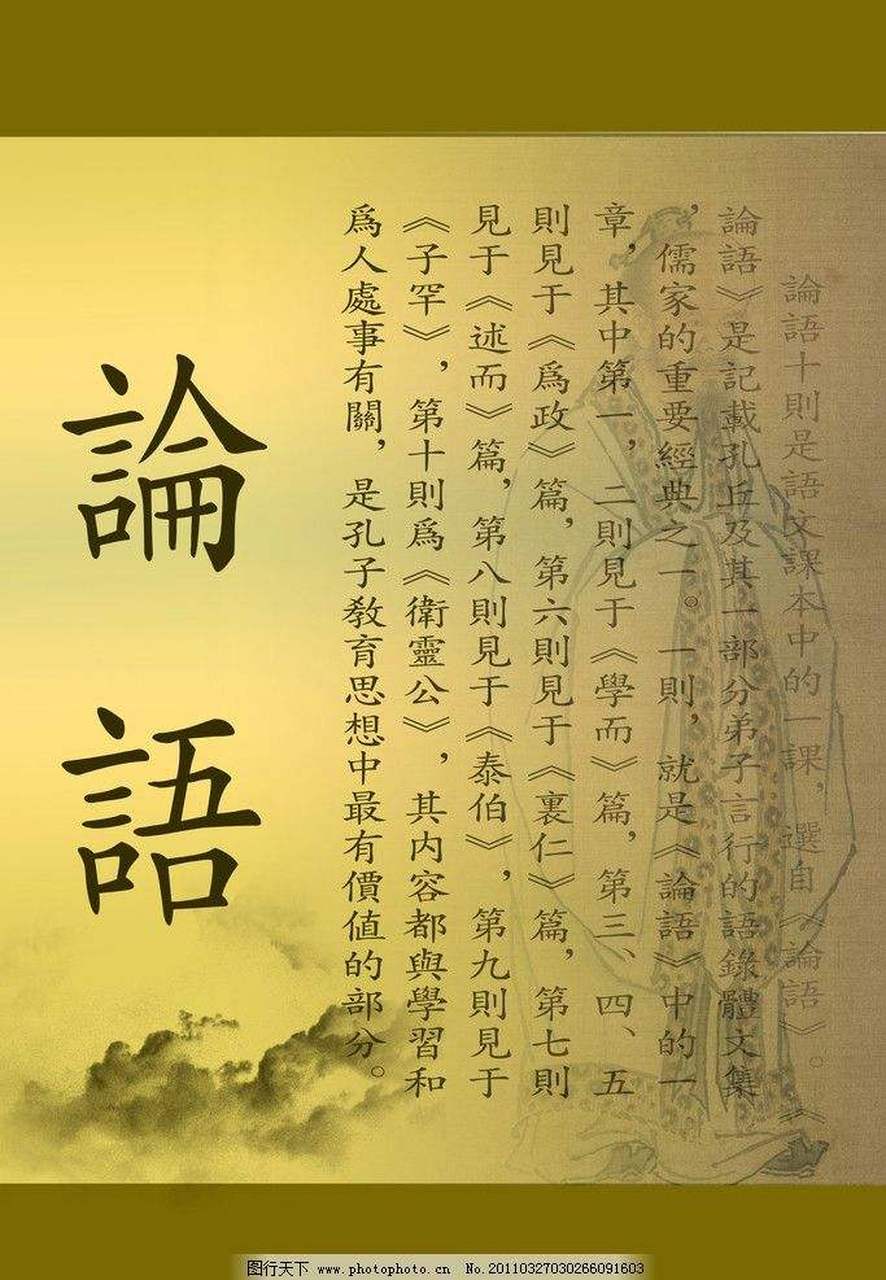 論語十則是語文課本中的一課，選自《論語》。《
論語》是記載孔丘及其一部分弟子言行的語錄體文集
，儒家的重要經典之一。一則，就是《論語》中的一
章，其中第一，二則見于《學而》篇，第三、四、五
則見于《爲政》篇，第六則見于《裏仁》篇，第七則
見于《述而》篇，第八則見于《泰伯》，第九則見于
《子罕》，第十則爲《衛靈公》，其内容都與學習和
爲人處事有關，是孔子教育思想中最有價值的部分。
論語
图行天下 www.photophoto.cn No.20110327030266091603